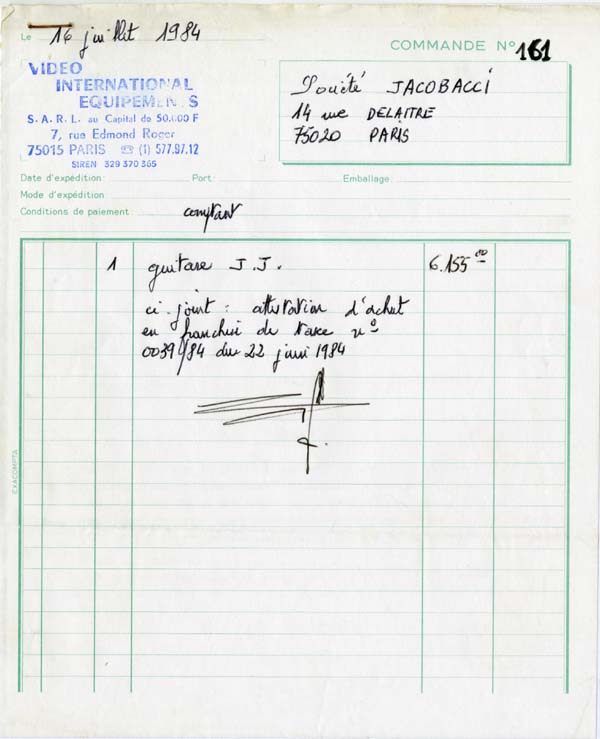 Le 16 juillet 1984
COMMANDE N° 161
VIDEO
INTERNATIONAL
EQUIPEMENTS
S. A. R. L. au Capital de 50.000 F
7, rue Edmond Roger
75015 PARIS ☎ (1) 577.97.12
SIREN 329 370 365
Société JACOBACCI
14 rue DELAITRE
75020 PARIS
Date d'expédition: Port: Emballage:
Mode d'expédition
Conditions de paiement: comptant
1 guitare J.J. 6.155 00
ci-joint : attestation d'achat
en franchise de taxe n°
00391/84 du 22 juin 1984
EXACOMPTA